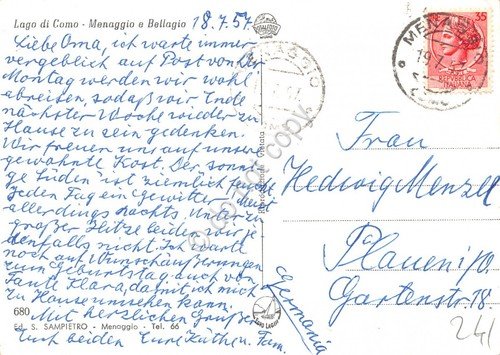 Lago di Como - Menaggio e Bellagio
18.7.57.
Liebe Oma, ich warte immer
vergeblich auf Post von dir
Montag werden wir wohl
abreisen, sodaß wir Ende
nächster Woche wieder zu
Hause zu sein gedenken.
Wir freuen uns auf unsere
gewohnte Kost. Der sonni-
ge Süden ist ziemlich feucht
Jeden Tag ein Gewitter, meist
allerdings nachts. Unter zu
großer Hitze leiden wir je-
denfalls nicht. Ich warte
noch auf Wunschäußerungen
zum Geburtstag auch von
Tante Klara, damit ich mich
zu Hause umsehen kann.
Mit herzlichen Grüßen
Euch beiden Eure Käthe u. Fam.
680
Ed. S. SAMPIETRO - Menaggio - Tel. 66
MENAGGIO
19.7.57
COMO
35
REPVBBLICA
ITALIANA
Frau
Hedwig Menzel
Plauen i/V.
Gartenstr. 18
Germania
24/
do not copy